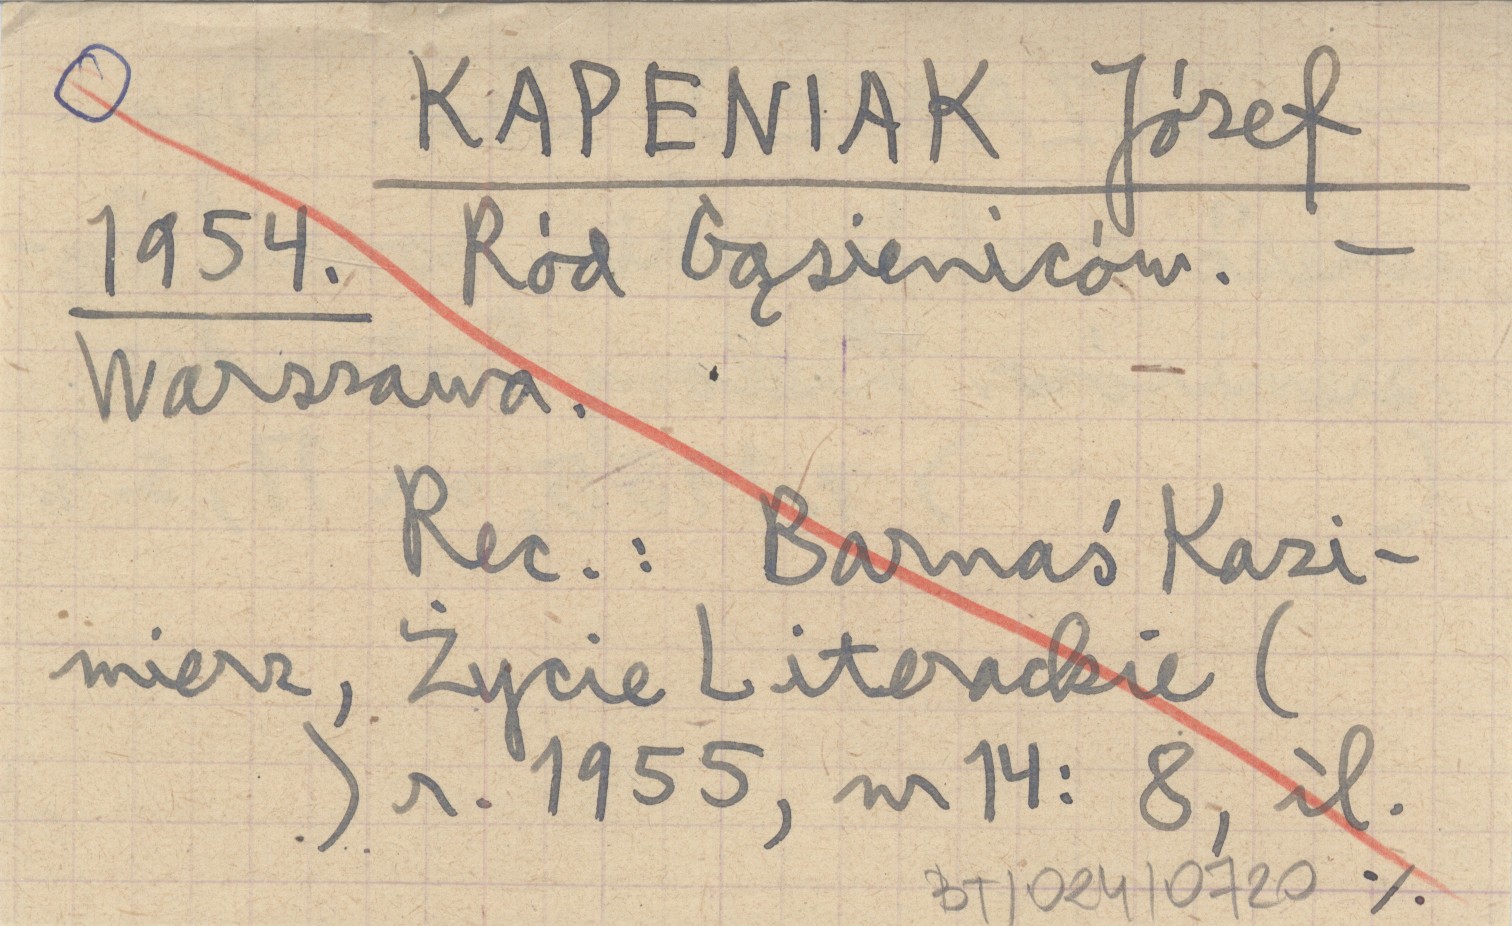 KAPENIAK Józef
1954. Ród Gąsieniców. –
Warszawa.
Rec.: Barnaś Kazi-
mierz, Życie Literackie (
) r. 1955, nr 14: 8, il.
BT/024/0720 ./.